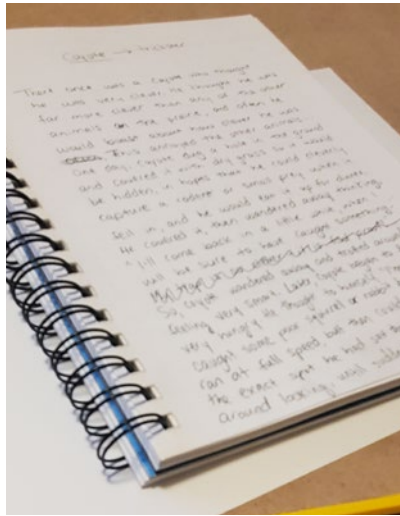 Coyote → trickster
There once was a coyote who thought
he was very clever. He thought he was
far more clever than any of the other
animals on the prairie, and often he
would boast about how clever he was
This annoyed the other animals.
One day, Coyote dug a hole in the ground
and covered it with dry grass so it would
be hidden, in hopes that he could cleverly
capture a rodent or small prey when it
fell in, and he would eat it up for dinner.
He covered it, then wandered away thinking,
"I'll come back in a little while, when I
will be sure to have caught something."
So, Coyote wandered away and trotted around
feeling very smart. Later, Coyote began to
very hungry. He thought to himself,
caught some poor squirrel or rabbit
ran at full speed, but then could
the exact spot he had set the
around looking, until sudden